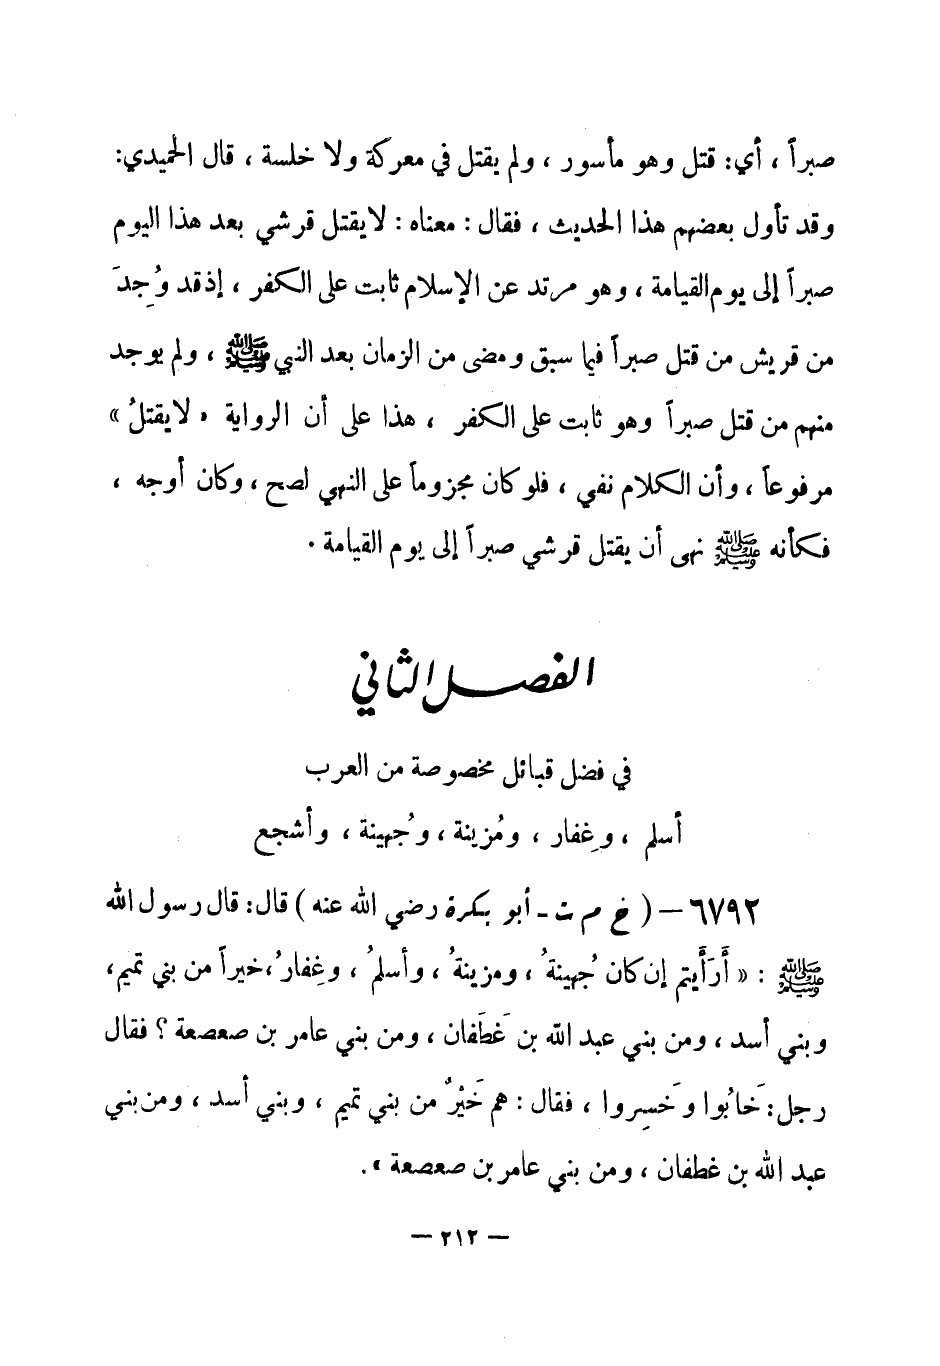 صبراً ، أي: قتل وهو مأسور ، ولم يقتل في معركة ولا خلسة ، قال الحميدي:
وقد تأول بعضهم هذا الحديث ، فقال : معناه : لا يقتل قرشي بعد هذا اليوم
صبراً إلى يوم القيامة ، وهو مرتد عن الإسلام ثابت على الكفر ، إذ قد وُجِدَ
من قريش من قتل صبراً فيما سبق ومضى من الزمان بعد النبي ﷺ ، ولم يوجد
منهم من قتل صبراً وهو ثابت على الكفر ، هذا على أن الرواية « لا يقتلُ »
مرفوعاً ، وأن الكلام نفي ، فلو كان مجزوماً على النهي لصح ، وكان أوجه ،
فكأنه ﷺ نهى أن يقتل قرشي صبراً إلى يوم القيامة .
الفصل الثاني
في فضل قبائل مخصوصة من العرب
أسلم ، وغِفار ، ومُزينة ، وجُهينة ، وأشجع
٦٧٩٢ — ( خ م ت ـ أبو بكرة رضي الله عنه ) قال: قال رسول الله
ﷺ : « أَرَأَيتم إن كان جُهينةُ ، ومزينةُ ، وأسلمُ ، وغِفارُ ، خيراً من بني تميم ،
وبني أسد ، ومن بني عبد الله بن غَطَفان ، ومن بني عامر بن صعصعة ؟ فقال
رجل: خَابُوا وخَسِروا ، فقال : هم خَيْرٌ من بني تميم ، وبني أسد ، ومن بني
عبد الله بن غطفان ، ومن بني عامر بن صعصعة » .
— ٢١٢ —